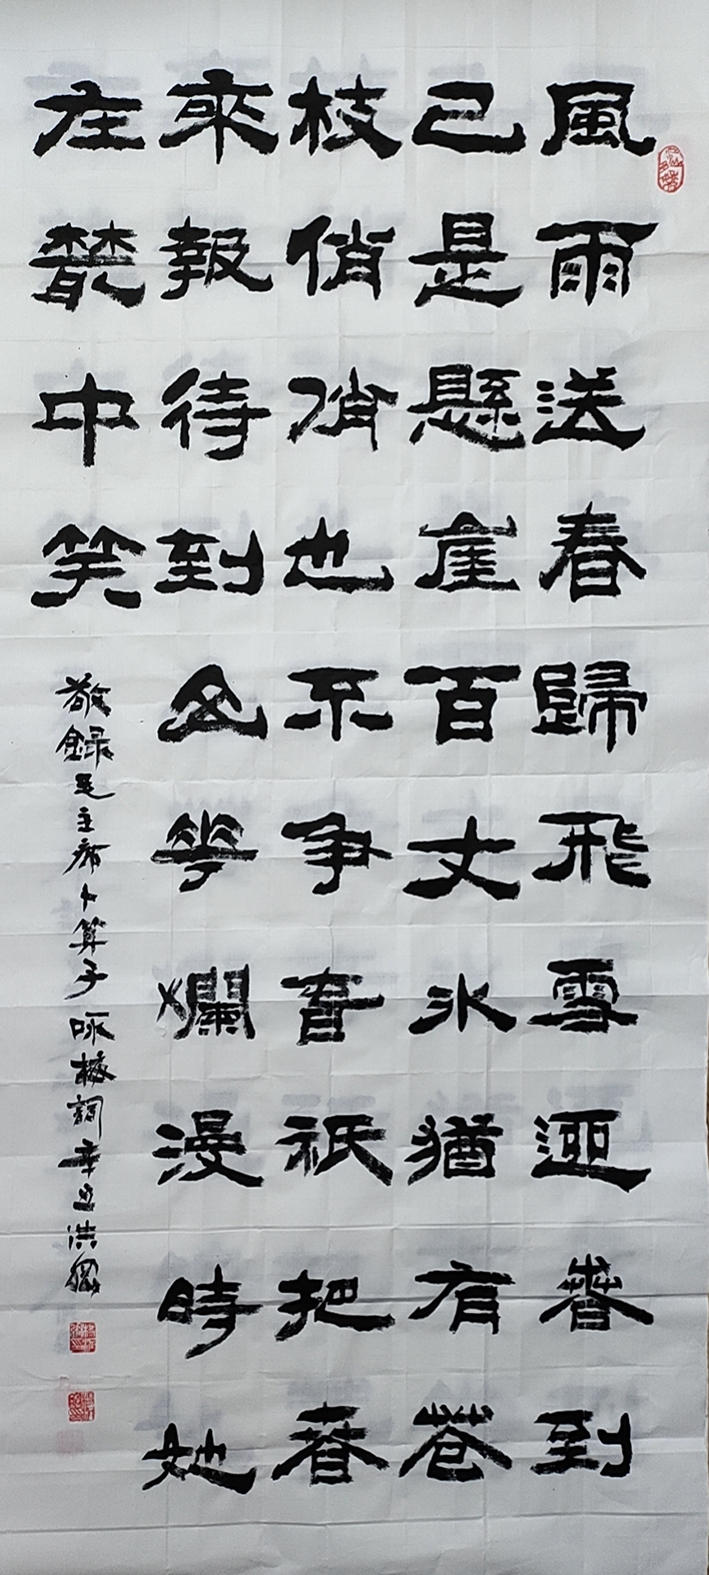 風雨送春歸飛雪迎春到
已是懸崖百丈冰猶有花
枝俏俏也不爭春祇把春
來報待到山華爛漫時她
在叢中笑
敬錄毛主席卜算子咏梅詞辛丑浩